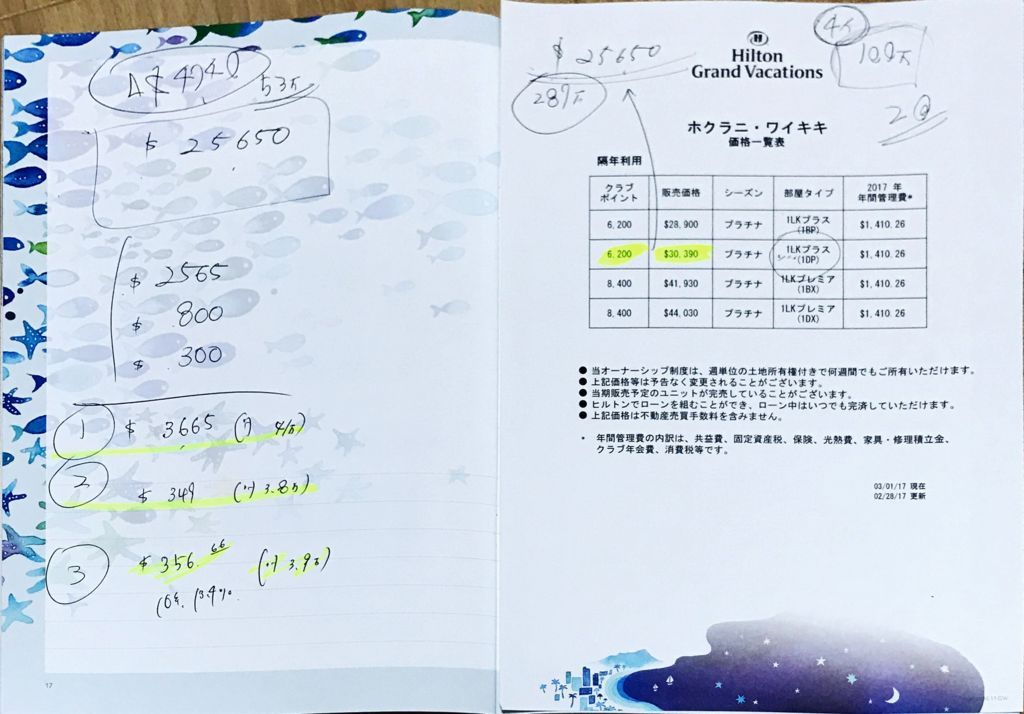 $4740
53万
$ 25650
$ 2565
$ 800
$ 300
1 $ 3665
2 $ 349 (月 3.8万)
3 $ 356.66 (月 3.9万)
13.4%
17
$ 25650
287万
Hilton
Grand Vacations
100万
ホクラニ・ワイキキ
価格一覧表
隔年利用
クラブポイント 販売価格 シーズン 部屋タイプ 2017 年年間管理費*
6,200 $28,900 プラチナ 1LKプラス (1BP) $1,410.26
6,200 $30,390 プラチナ 1LKプラス (1DP) $1,410.26
8,400 $41,930 プラチナ 1LKプレミア (1BX) $1,410.26
8,400 $44,030 プラチナ 1LKプレミア (1DX) $1,410.26
● 当オーナーシップ制度は、週単位の土地所有権付きで何週間でもご所有いただけます。
● 上記価格等は予告なく変更されることがございます。
● 当期販売予定のユニットが完売していることがございます。
● ヒルトンでローンを組むことができ、ローン中はいつでも完済していただけます。
● 上記価格は不動産売買手数料を含みません。
* 年間管理費の内訳は、共益費、固定資産税、保険、光熱費、家具・修理積立金、
クラブ年会費、消費税等です。
03/01/17 現在
02/28/17 更新